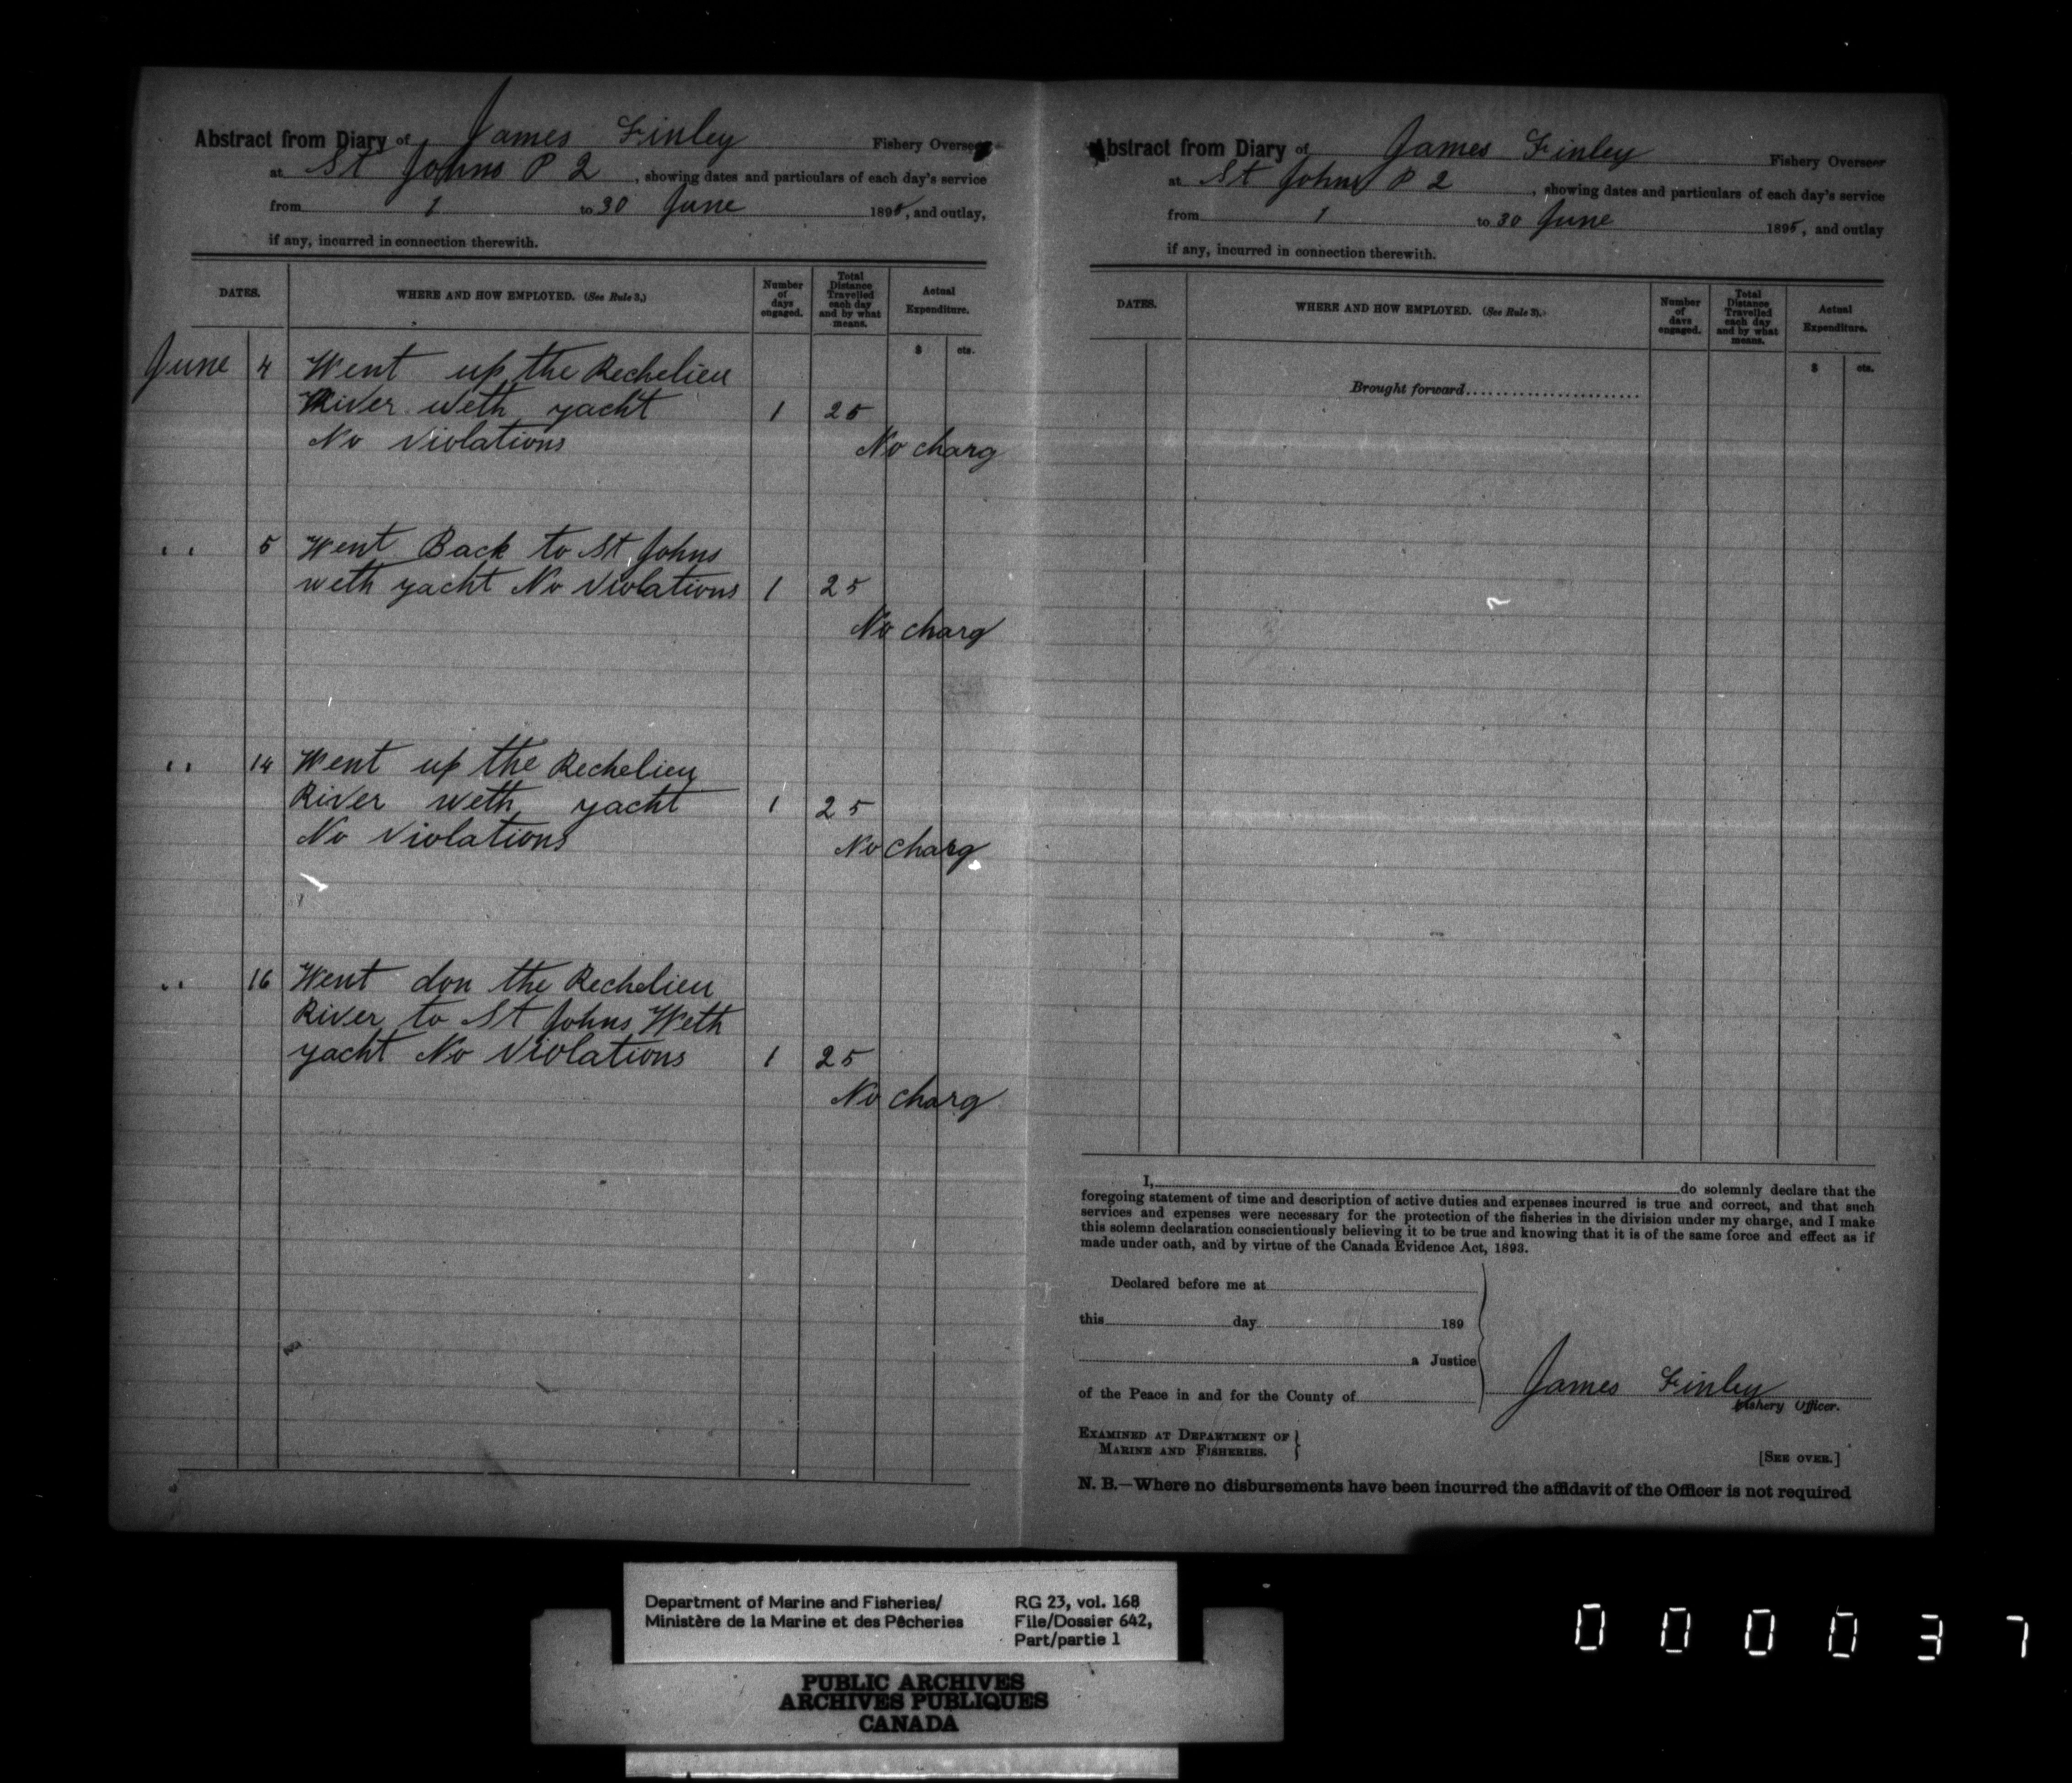 Abstract from Diary of James Finley Fishery Overseer
at St Johns P 2, showing dates and particulars of each day's service
from 1 to 30 June 1895, and outlay,
if any, incurred in connection therewith.
DATES.
WHERE AND HOW EMPLOYED. (See Rule 3.)
Number of days engaged.
Total Distance Travelled each day and by what means.
Actual Expenditure.
$ cts.
June 4 Went up the Rechelieu
River weth yacht 1 25
No violations No charg
" 5 Went Back to St Johns
weth yacht No Violations 1 25
No charg
" 14 Went up the Rechelieu
River weth yacht 1 25
No Violations No charg
" 16 Went don the Rechelieu
River to St Johns Weth
yacht No Violations 1 25
No charg
Abstract from Diary of James Finley Fishery Overseer
at St Johns P 2, showing dates and particulars of each day's service
from 1 to 30 June 1895, and outlay
if any, incurred in connection therewith.
DATES.
WHERE AND HOW EMPLOYED. (See Rule 3).
Number of days engaged.
Total Distance Travelled each day and by what means.
Actual Expenditure.
$ cts.
Brought forward
I, do solemnly declare that the
foregoing statement of time and description of active duties and expenses incurred is true and correct, and that such
services and expenses were necessary for the protection of the fisheries in the division under my charge, and I make
this solemn declaration conscientiously believing it to be true and knowing that it is of the same force and effect as if
made under oath, and by virtue of the Canada Evidence Act, 1893.
Declared before me at
this day 189
a Justice
of the Peace in and for the County of
James Finley
Fishery Officer.
EXAMINED AT DEPARTMENT OF
MARINE AND FISHERIES.
[SEE OVER.]
N. B.—Where no disbursements have been incurred the affidavit of the Officer is not required
Department of Marine and Fisheries/
Ministère de la Marine et des Pêcheries
RG 23, vol. 168
File/Dossier 642,
Part/partie 1
PUBLIC ARCHIVES
ARCHIVES PUBLIQUES
CANADA
000037